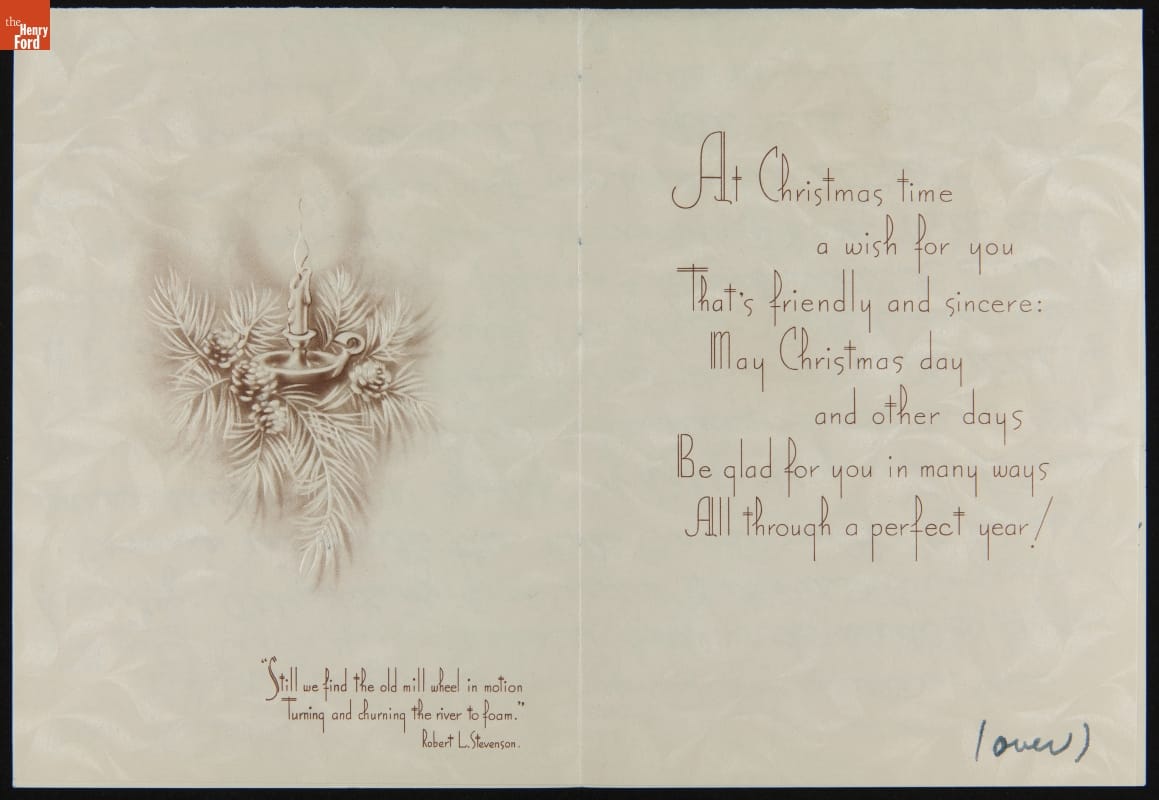 the
Henry
Ford
"Still we find the old mill wheel in motion
Turning and churning the river to foam."
Robert L. Stevenson.
At Christmas time
a wish for you
That's friendly and sincere:
May Christmas day
and other days
Be glad for you in many ways
All through a perfect year!
(over)